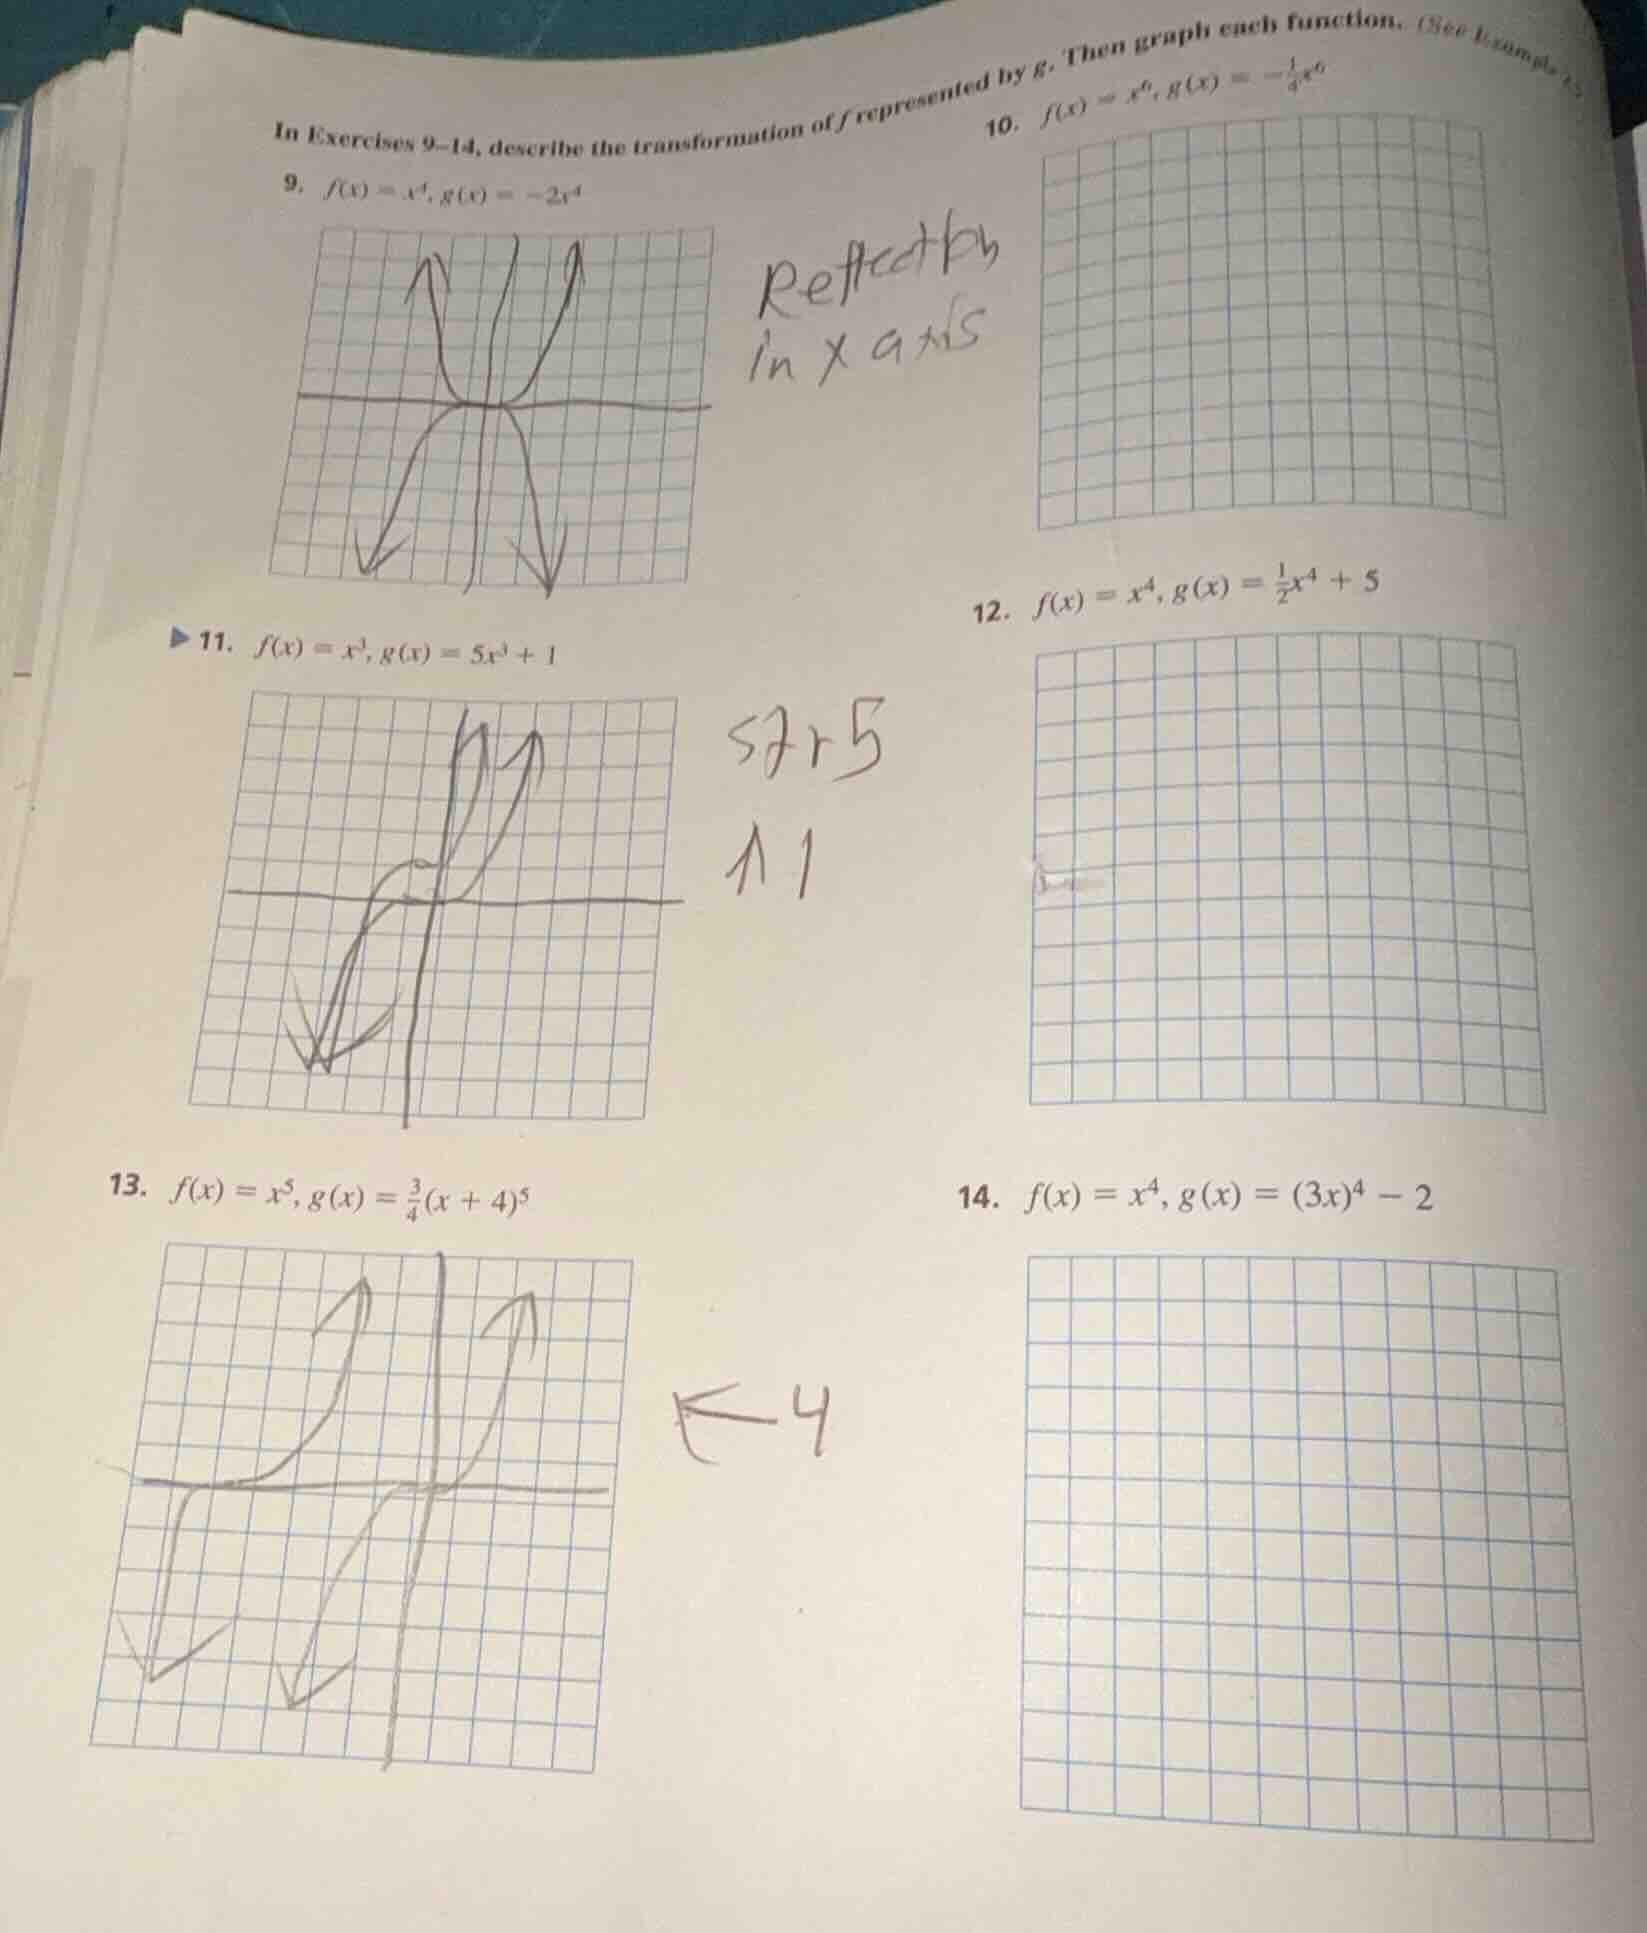 In Exercises 9–14, describe the transformation of f represented by g. Then graph each function. (See Example
9. f(x) = x⁴, g(x) = −2x⁴
Reflection
in x axis
10. f(x) = x⁶, g(x) = −1/4x⁶
11. f(x) = x³, g(x) = 5x³ + 1
5
↑ 1
12. f(x) = x⁴, g(x) = 1/2x⁴ + 5
13. f(x) = x⁵, g(x) = 3/4(x + 4)⁵
← 4
14. f(x) = x⁴, g(x) = (3x)⁴ − 2